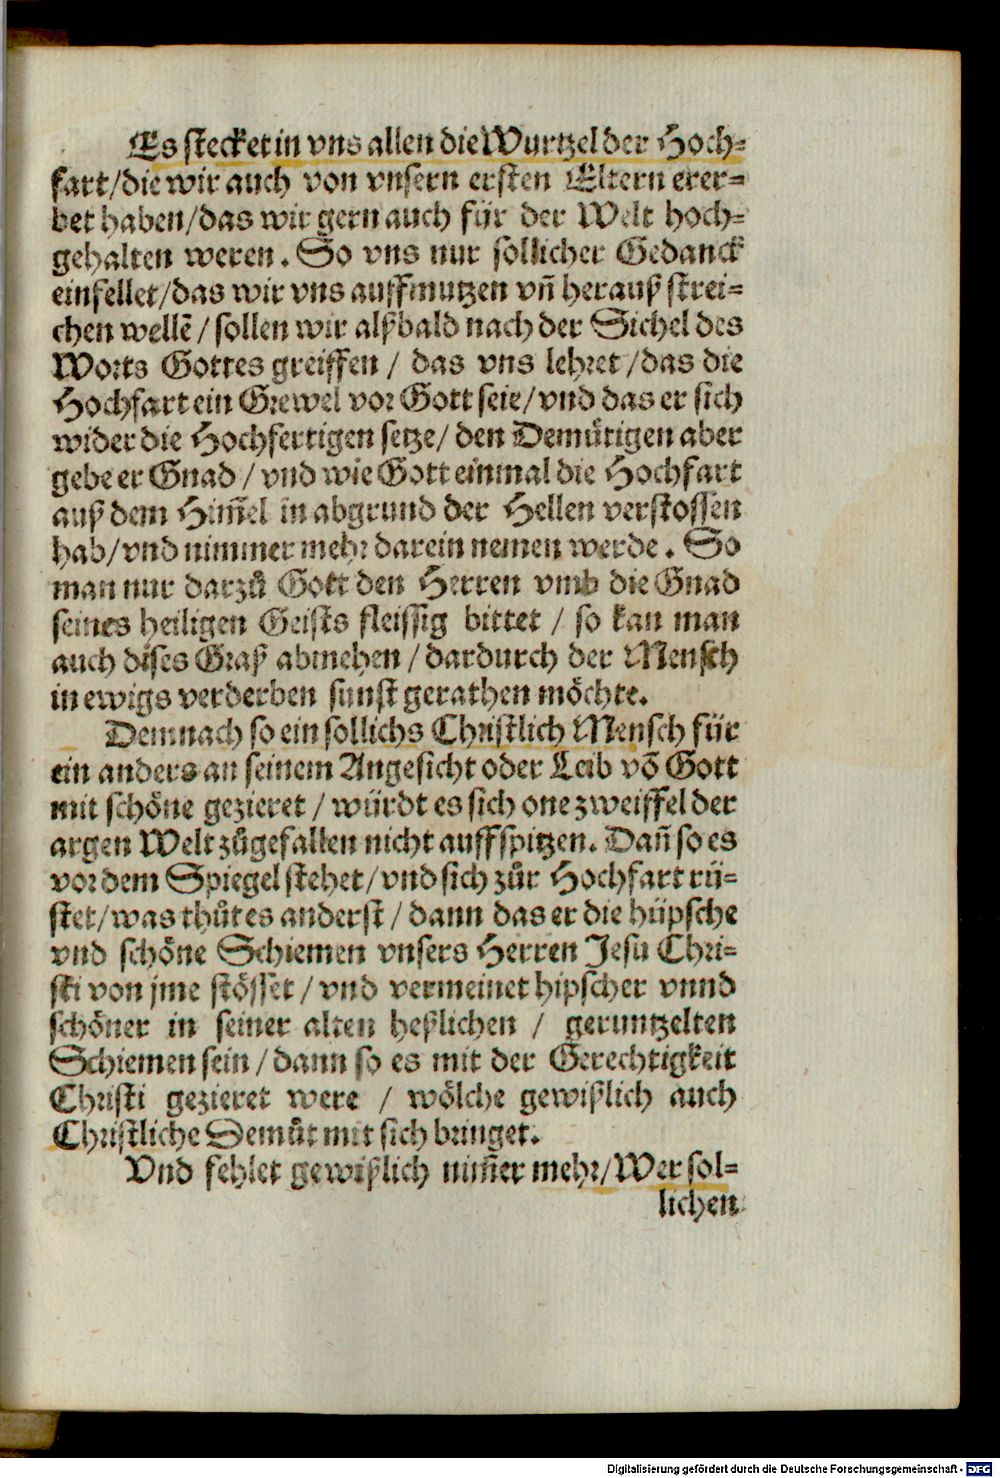 Es stecket in vns allen die Wurtzel der Hoch⸗
fart/die wir auch von vnsern ersten Eltern erer⸗
bet haben/das wir gern auch für der Welt hoch⸗
gehalten weren. So vns nur sollicher Gedanck
einfellet/das wir vns auffmutzen vñ herauß strei⸗
chen wellẽ / sollen wir alßbald nach der Sichel des
Worts Gottes greiffen / das vns lehret /das die
Hochfart ein Grewel vor Gott seie/vnd das er sich
wider die Hochfertigen setze/ den Demütigen aber
gebe er Gnad / vnd wie Gott einmal die Hochfart
auß dem Him̃el in abgrund der Hellen verstossen
hab/vnd nimmer mehr darein nemen werde. So
man nur darzů Gott den Herren vmb die Gnad
seines heiligen Geists fleissig bittet / so kan man
auch dises Graß abmehen / dardurch der Mensch
in ewigs verderben sunst gerathen möchte.
Demnach so ein sollichs Christlich Mensch für
ein anders an seinem Angesicht oder Leib võ Gott
mit schöne gezieret / würdt es sich one zweiffel der
argen Welt zůgefallen nicht auffspitzen. Dañ so es
vor dem Spiegel stehet/vnd sich zůr Hochfart rü⸗
stet/was thůt es anderst / dann das er die hüpsche
vnd schöne Schiemen vnsers Herren Jesu Chri⸗
sti von jme stösset / vnd vermeinet hipscher vnnd
schöner in seiner alten heßlichen / geruntzelten
Schiemen sein / dann so es mit der Gerechtigkeit
Christi gezieret were / wölche gewißlich auch
Christliche Demůt mit sich bringet.
Vnd fehlet gewißlich nim̃er mehr/Wer sol⸗
lichen
Digitalisierung gefördert durch die Deutsche Forschungsgemeinschaft - DFG